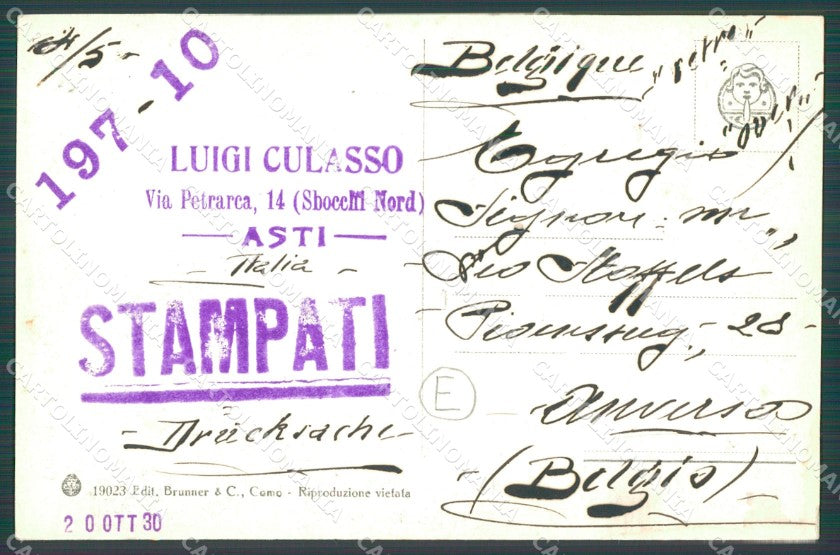 4/5-
197-10
LUIGI CULASSO
Via Petrarca, 14 (Sbocchi Nord)
ASTI
Italia
STAMPATI
- Drucksache -
19023 Edit. Brunner & C., Como - Riproduzione vietata
20 OTT 30
Belgique
"retro"
"over"
Egregio
Signor: mr.,
Pio Stoffels
28-
E
Anversa
(Belgio)
CARTOLINOMANIA